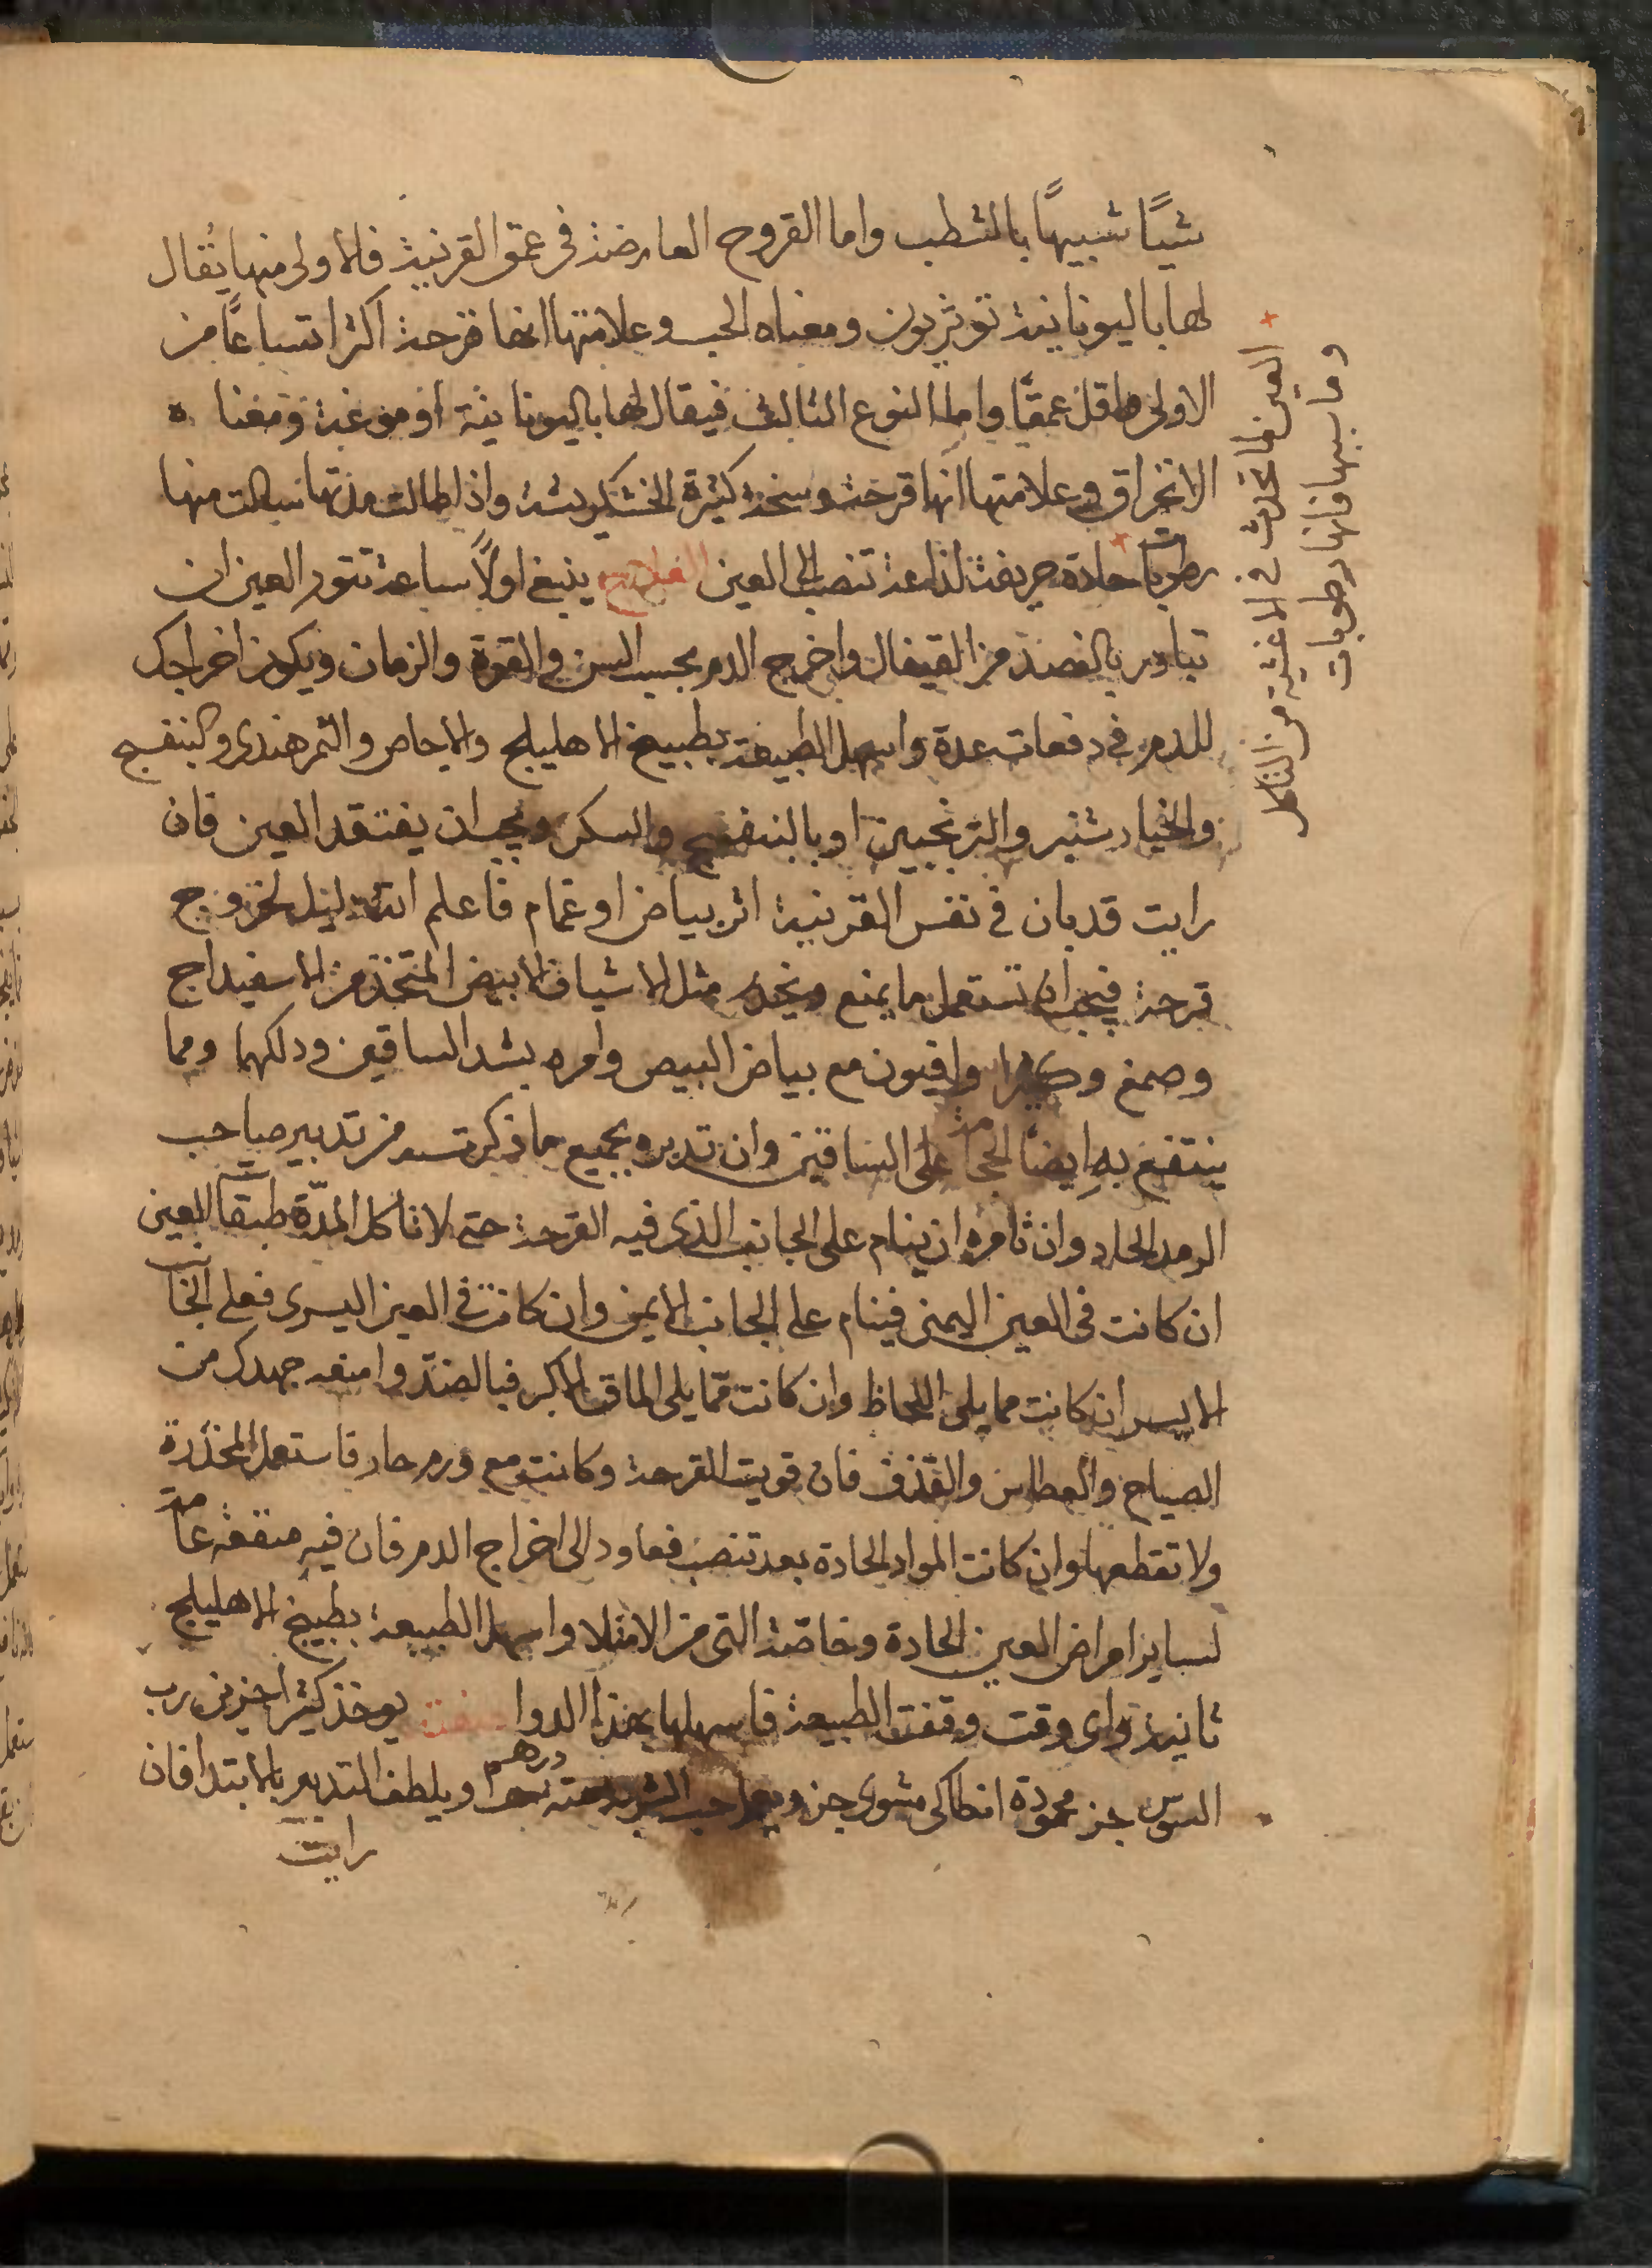 شيًا شبيهًا بالشطب واما القروح العارضة في عمق القرنية فالاولى منها يُقال
لها باليونانية توثريون ومعناه الجب وعلامتها انها قرحة اكثر اتساعًا من
الاولى واقل عمقًا واما النوع الثالث فيقال لها باليونانية اوموغية ومعنا ه
الانخراق وعلامتها انها قرحة وسخة كثيرة الخشكريشة واذا طالت مدتها سالت منها
رطوبات حادة حريفة لذاعة تنصب الى العين العلاج ينبغي اولًا ساعة تتور العين ان
تبادر بالفصد من القيفال واخرج الدم بحسب السن والقوة والزمان ويكون اخراجك
للدم في دفعات عدة واسهل الطبيعة بطبيخ الاهليلج والاجاص والتمرهندي والبنفسج
والخيارشنبر والترنجبين او بالبنفسج والسكر ويجب ان يفتقد العين فان
رايت قد بان في نفس القرنية اثر بياض او غمام فاعلم انه دليل لخروج
قرحة فيجب ان تستعمل ما يمنع ويخدر مثل الاشياف الابيض المتخذ من الاسفيداج
وصمغ وكثيرا وافيون مع بياض البيض وامره بشد الساقين ودلكهما ومما
ينتفع به ايضًا الحجامة على الساقين وان تدبره بجميع ما ذكرته من تدبير صاحب
الرمد الحار وان تأمره ان ينام على الجانب الذي فيه القرحة حتى لا تاكل المدّة طبقات العين
ان كانت في العين اليمنى فينام على الجانب الايمن وان كانت في العين اليسرى فعلى الجانب
الايسر ان كانت مما يلي اللحاظ وان كانت ممّا يلي الماق الاكبر فبالضدّ وامنعه جهدك من
الصياح والعطاس والقذف فان قويت القرحة وكانت مع ورم حار فاستعمل المخدّرة
ولا تقطعها وان كانت المواد الحادة بعد تنصب فعاود الى اخراج الدم فان فيه منفعة عامة
لساير امراض العين الحادة وخاصّة التي من الامتلا واسهل الطبيعة بطبيخ الاهليلج
ثانية واي وقت وقفت الطبيعة فاسهلها بهذا الدوا صفته يوخذ كثيرا جزين رب
السوس جز محمودة انطاكي مشوي جز ويعمل حب الشربة منه درهم ويلطف التدبير بالابتدا فان
رايت
العين فما تحدث في الاغشية من التاكل
وما سببها فانها رطوبات